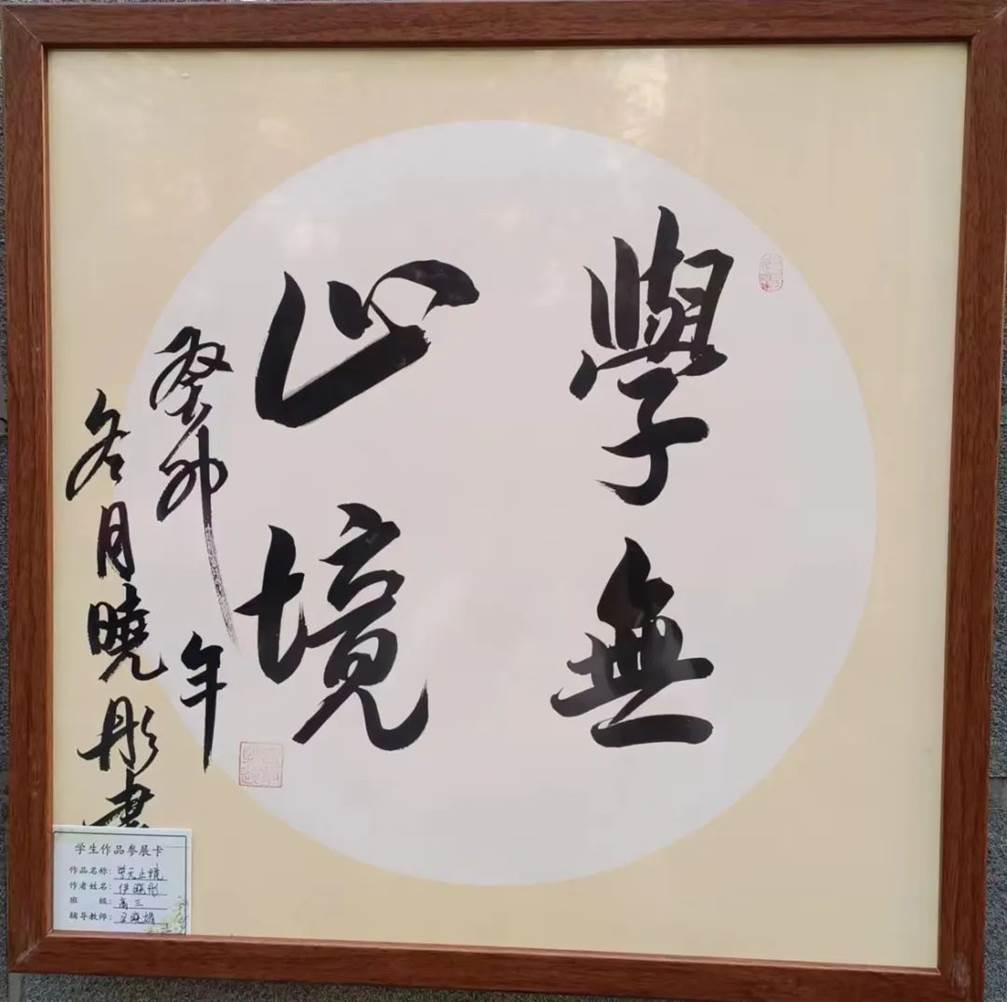 學無
止境
癸卯年
冬月曉彤書
学生作品参展卡
作品名称：学无止境
作者姓名：伊晓彤
班 级：高三
辅导教师：